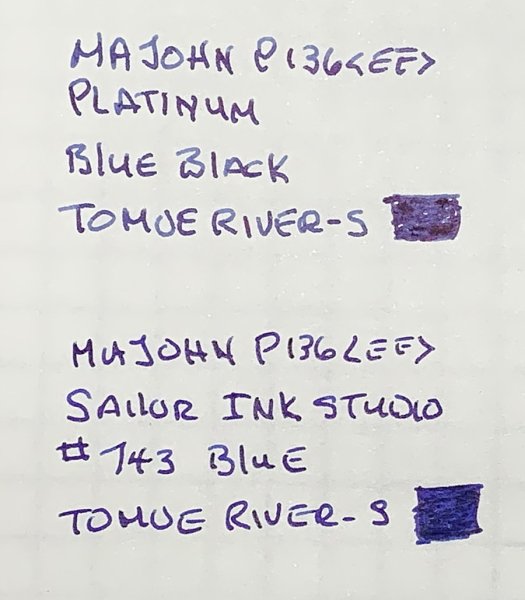 MAJOHN P136<EF>
PLATINUM
BLUE BLACK
TOMOE RIVER-S
MAJOHN P136<EF>
SAILOR INK STUDIO
#743 BLUE
TOMOE RIVER-S